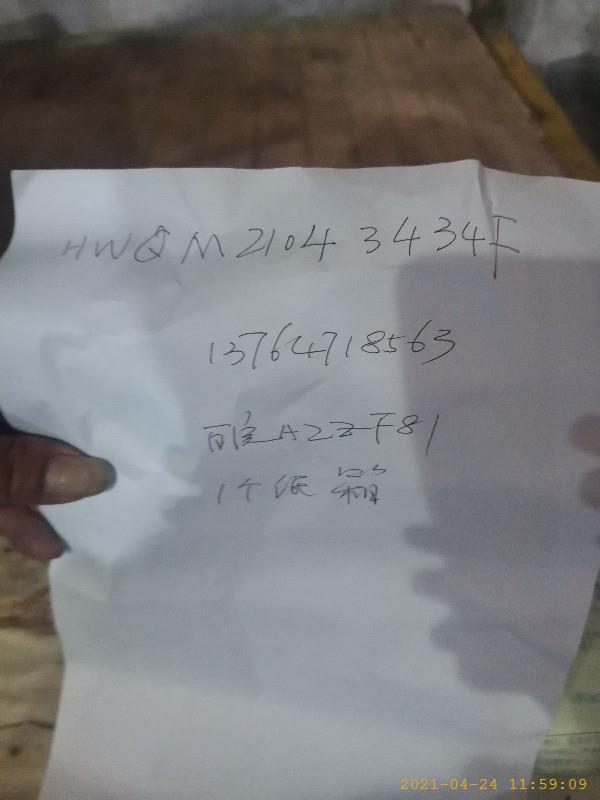 HWQM21043434F
13764718563
A22-F81
1个纸箱
2021-04-24 11:59:09